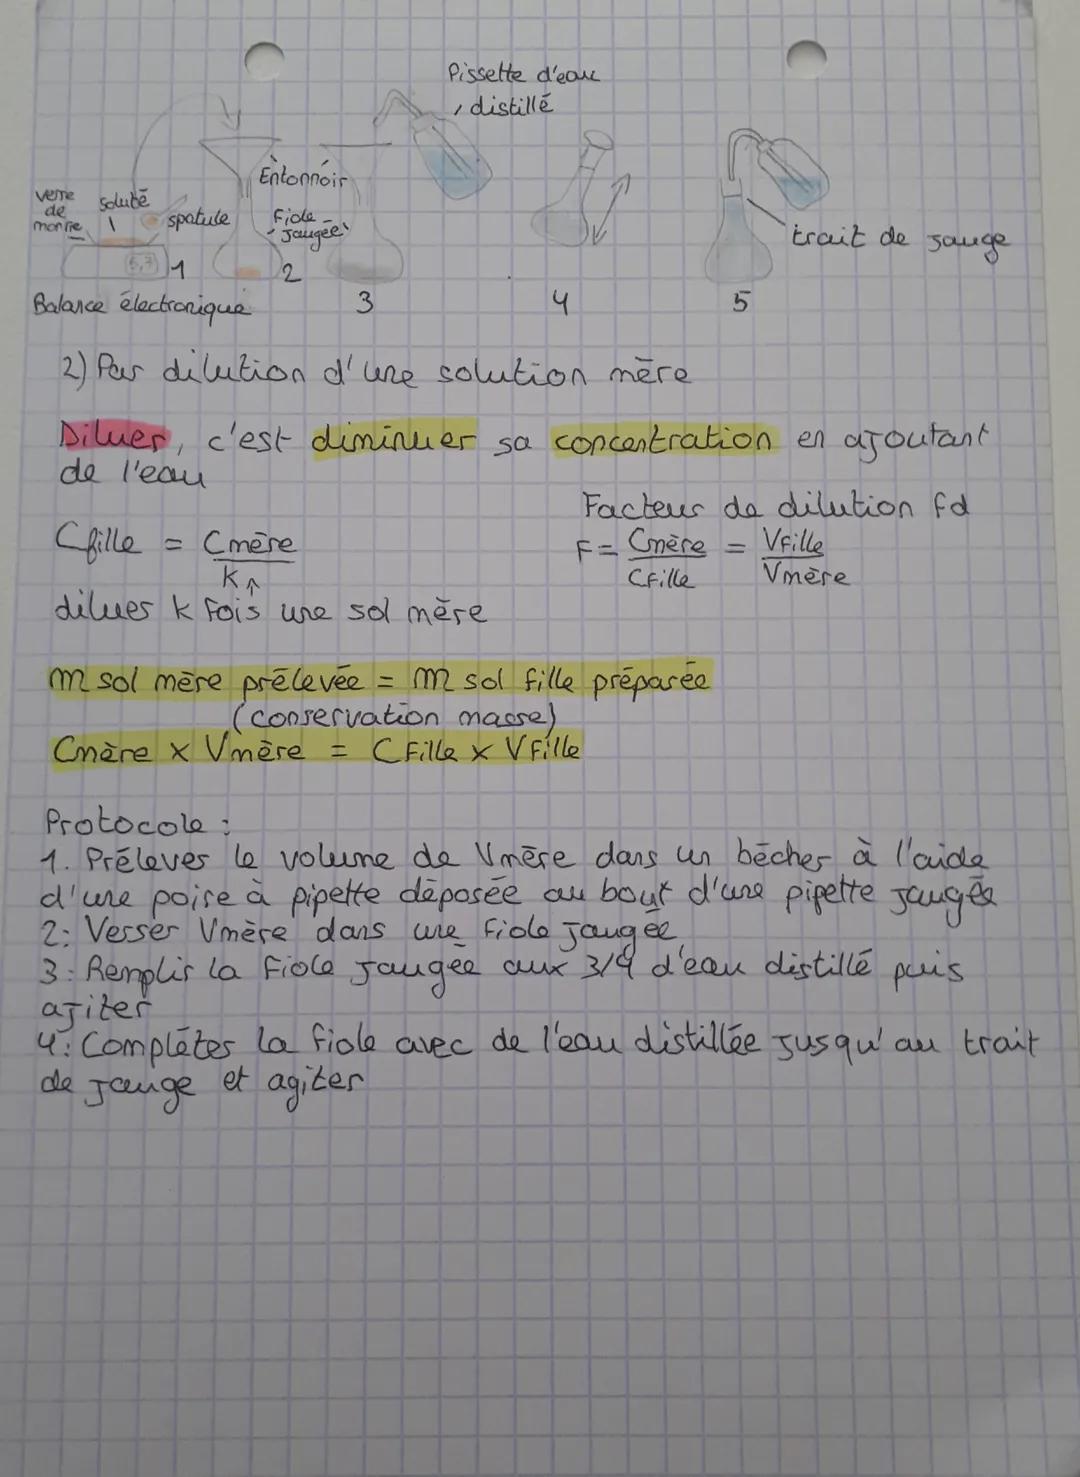 Pissette d'eau
distillé
Entonnoir
verre
de
montre
soluté
spatule
fiole
jaugée
trait de jauge
5,7
1
2
Balance électronique
3
4
5
2) Par dilution d'une solution mère
Diluer, c'est diminuer sa concentration en ajoutant
de l'eau
Facteur de dilution Fd
Cfille = Cmère / k
F = Cmère / Cfille = Vfille / Vmère
diluer k fois une sol mère
m sol mère prélevée = m sol fille préparée
(conservation masse)
Cmère x Vmère = Cfille x Vfille
Protocole :
1. Prélever le volume de Vmère dans un bécher à l'aide
d'une poire à pipette déposée au bout d'une pipette jaugée
2: Verser Vmère dans une fiole jaugée
3: Remplir la fiole jaugée aux 3/4 d'eau distillé puis
agiter
4: Compléter la fiole avec de l'eau distillée jusqu'au trait
de jauge et agiter